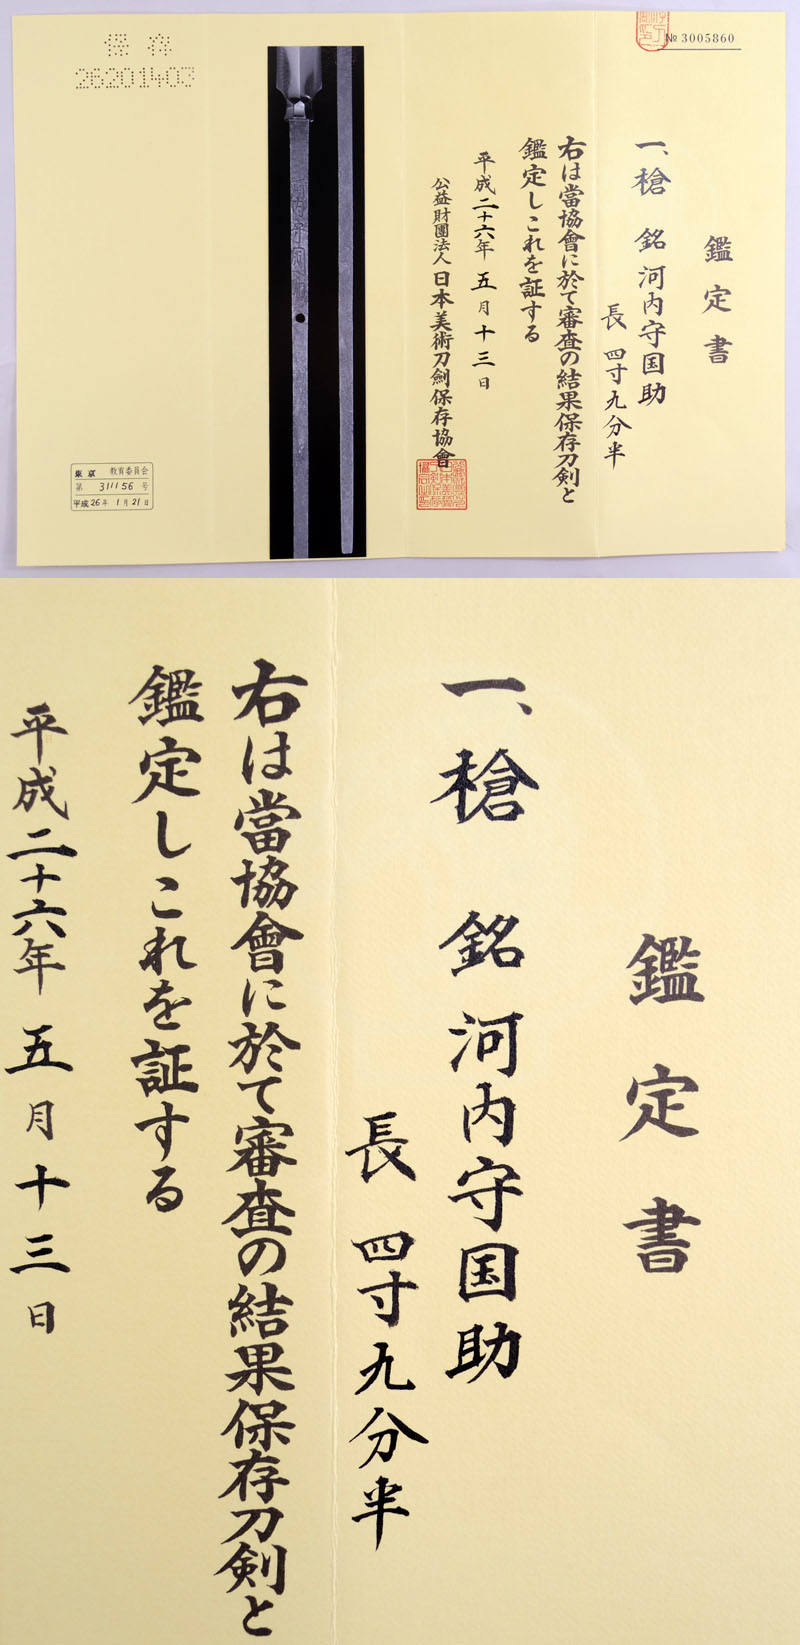 № 3005860
鑑定書
一、槍 銘 河内守国助
長 四寸九分半
右は當協會に於て審査の結果保存刀剣と
鑑定しこれを証する
平成二十六年 五月十三日
公益財團法人 日本美術刀劍保存協會
保存
26201403
東京 教育委員会
第 311156 号
平成26年 1月21日
鑑定書
一、槍 銘 河内守国助
長 四寸九分半
右は當協會に於て審査の結果保存刀剣と
鑑定しこれを証する
平成二十六年 五月十三日